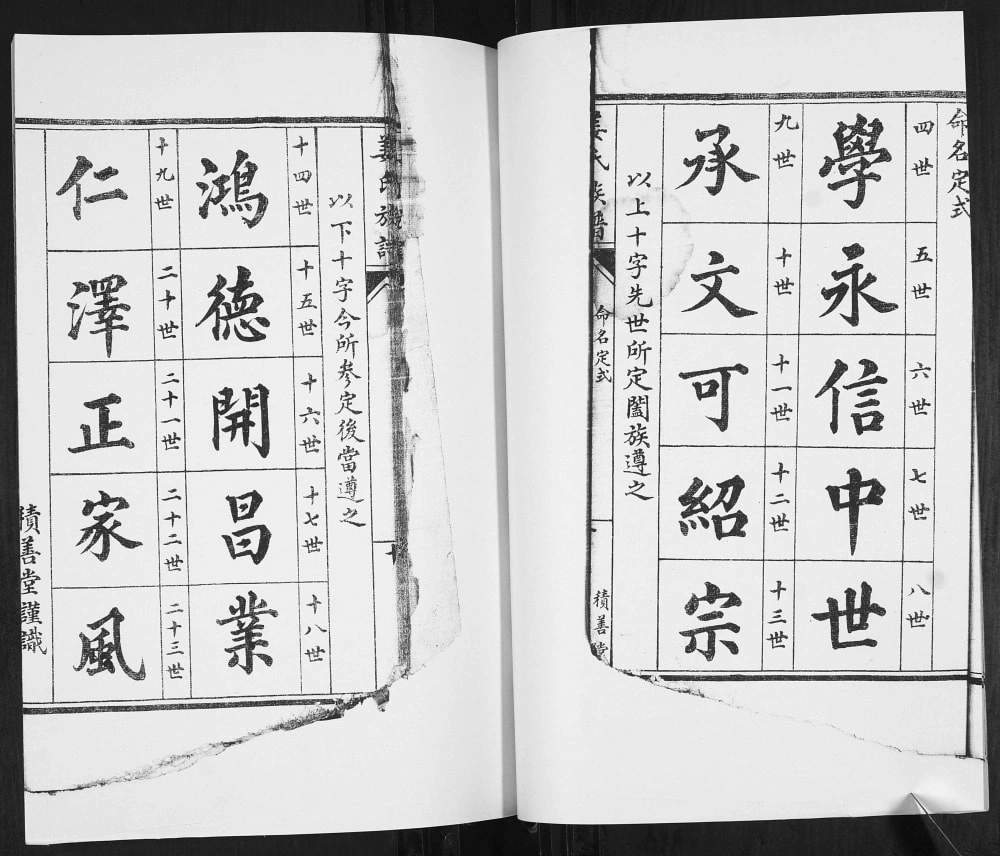 命名定式
四世 五世 六世 七世 八世
學永信中世
九世 十世 十一世 十二世 十三世
承文可紹宗
以上十字先世所定闔族遵之
姜氏族譜 命名定式 積善堂
姜氏族譜 十
以下十字今所參定後當遵之
十四世 十五世 十六世 十七世 十八世
鴻德開昌業
十九世 二十世 二十一世 二十二世 二十三世
仁澤正家風
積善堂謹識